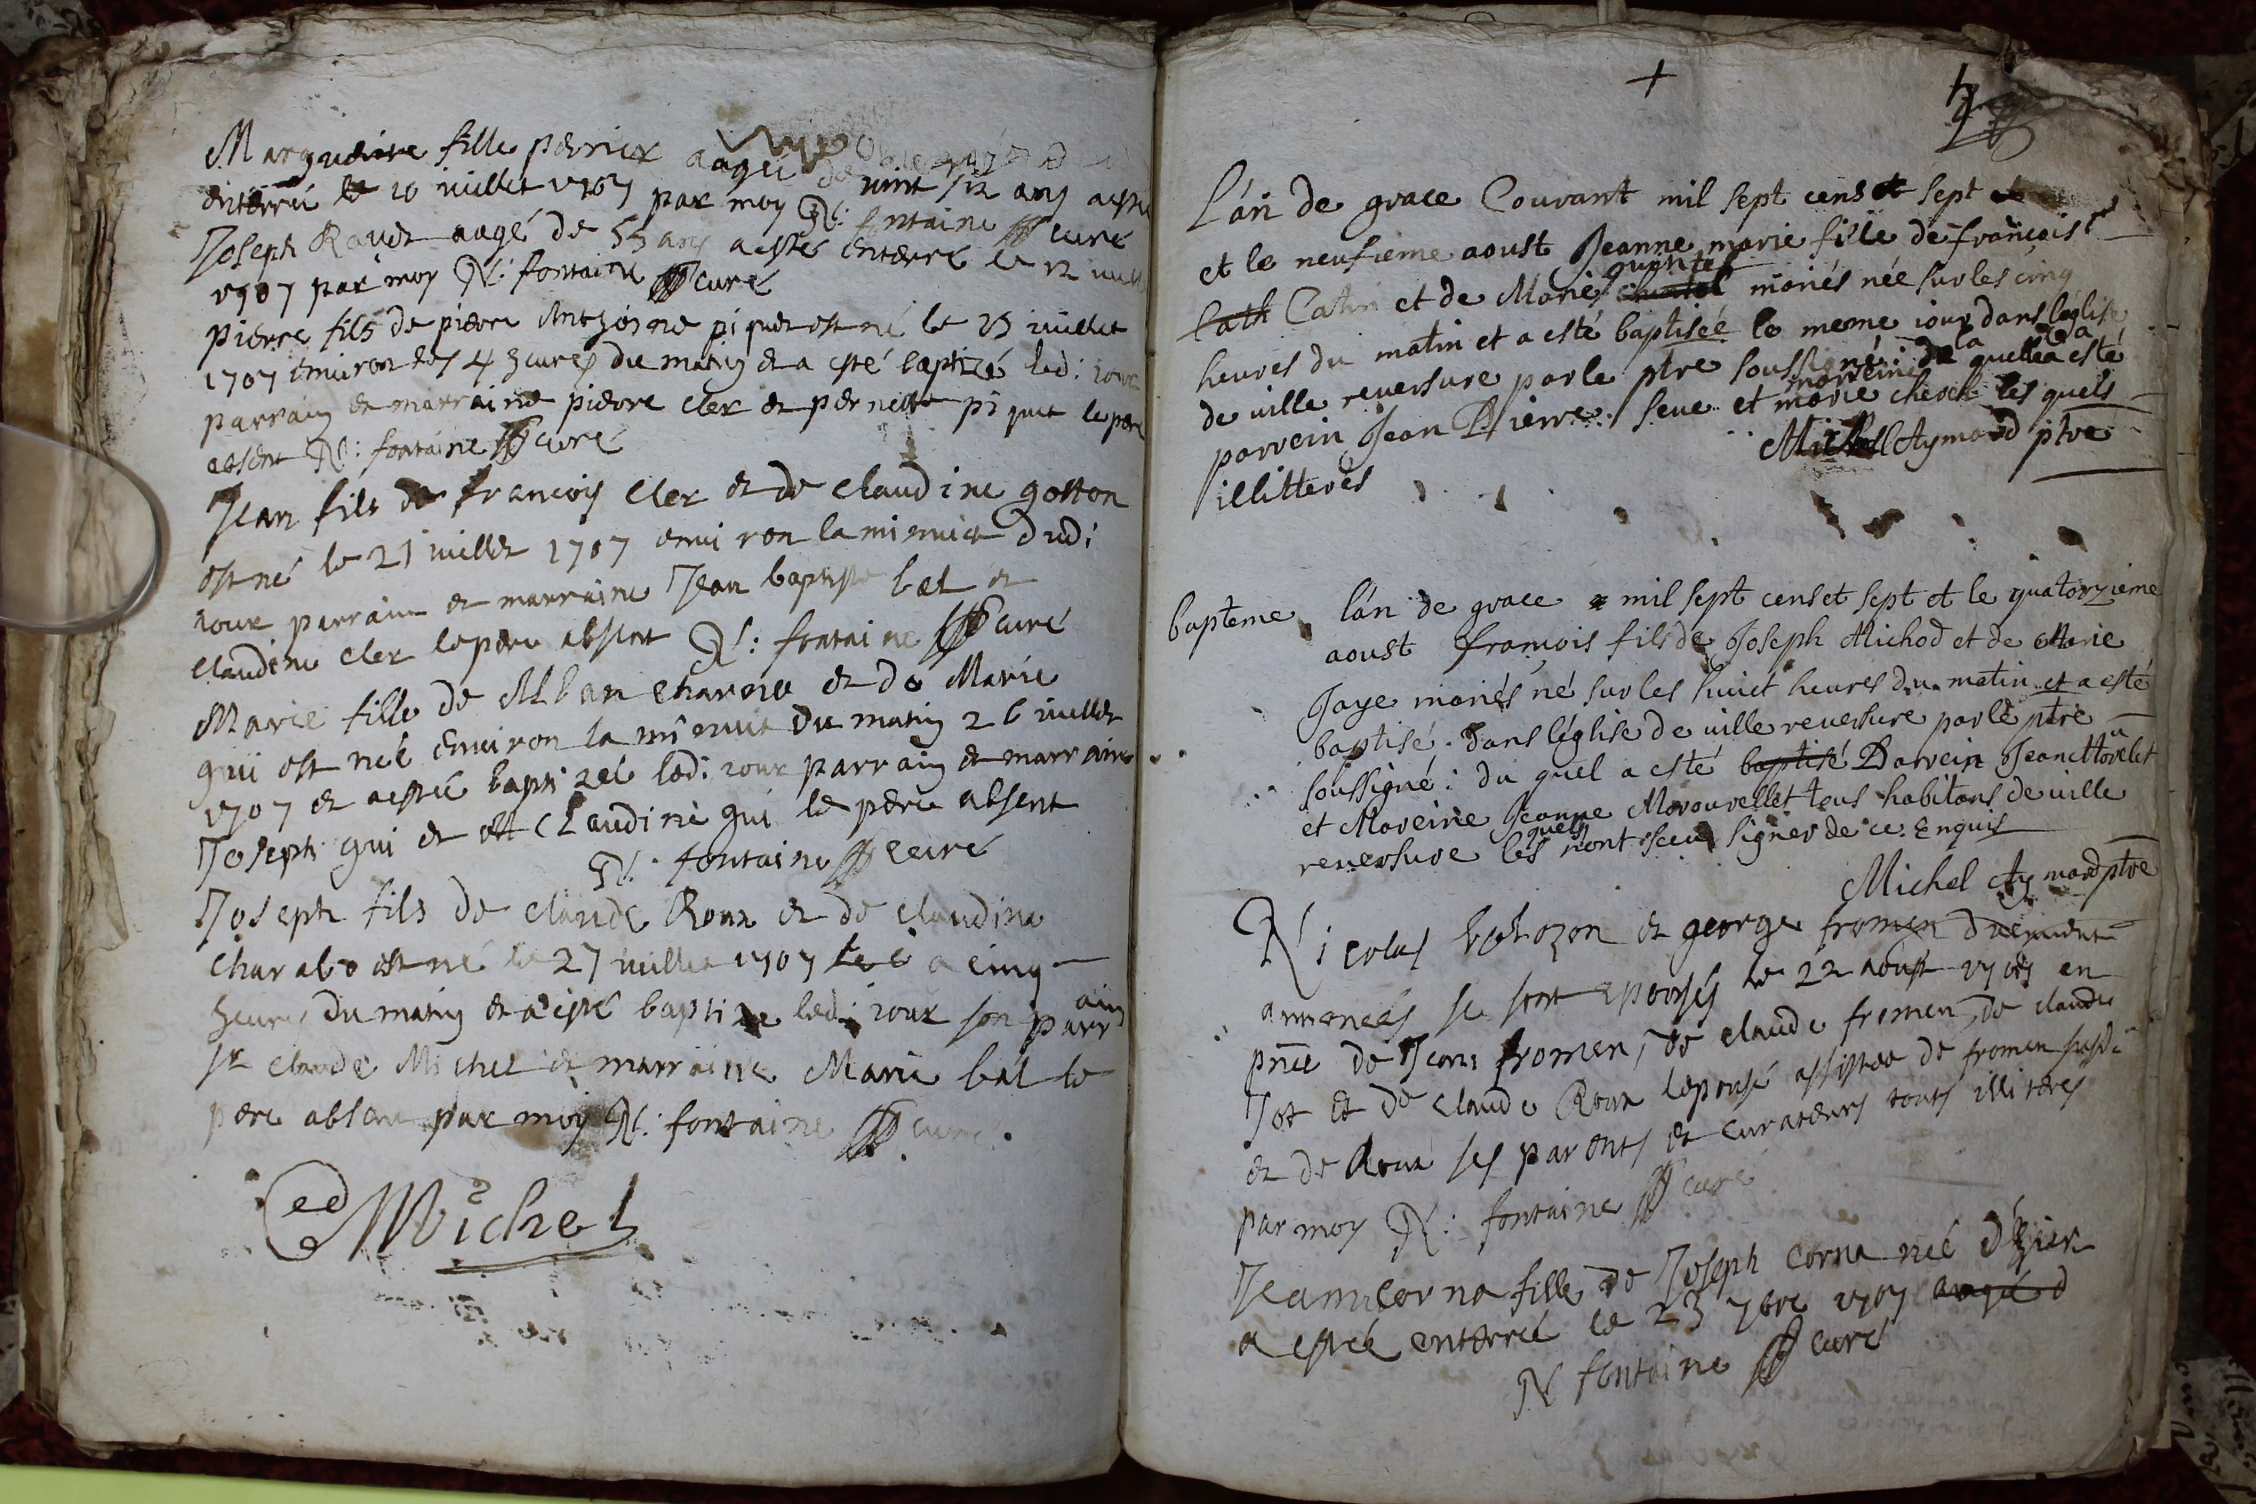 Marguerite fille perrier aagée de vint six ans a esté
enterrée le 10 iuillet 1707 par moy N: fontaine curé
Joseph Roudt aagé de 55 ans a esté enterré le 12 iuill
1707 par moy N: fontaine curé
pierre fils de pierre Anthoine piquet est né le 15 iuillet
1707 environ les 4 heures du matin et a esté baptizé led: iour
parrain et marraine pierre cler et pernette piquet le pere
absent N: fontaine curé
Jean fils de francois cler et de claudine gotton
est né le 21 iuillet 1707 environ la minuict dudi
iour parrain et marraine Jean baptiste bal et
claudine cler le pere absent N: fontaine curé
Marie fille de Alban charvie et de Marie
gui est neé environ la mi nuit du matin 26 iuillet
1707 et a estée baptizée led: iour parrain et marraine
Joseph gui et Claudine gui le pere absent
N: fontaine curé
Joseph fils de claude Roux et de claudine
charabo est né le 27 iuillet 1707 a cinq
heures du matin et a esté baptize led: iour son parrain
sr claude Michel et marraine Marie bal le
pere absent par moy N: fontaine curé
Michel
+
L'an de grace Courant mil sept cens et sept
et le neufieme aoust Jeanne marie fille de françois
Cath Catin et de Marie mariés née sur les cinq
heures du matin et a esté baptisée le meme iour dans leglise
de ville reversure par le ptre soussigné: de la quelle a esté
parrein Jean Pierre seue et marreine marie les quels
illitterés Michel Aymard ptre
bapteme l'an de grace mil sept cens et sept et le quatorzieme
aoust françois fils de Joseph Michod et de Marie
Jaye mariés né sur les huict heures du matin et a esté
baptisé dans l'église de ville reversure par le ptre
soussigné: du quel a esté baptisé Parvein Jean
et Mareine Jeanne Morouvellet tous habitans de ville
reversure les quels n'ont sceu signer de ce enquis
Michel Aymard ptre
Nicolas et george fromen
annonceés se sont epousés le 22 aoust 1707 en
pnce de Jean fromen, de claude fromen, de claude
Jot et de claude Roux lepouse assistée de fromen susd:
et de Roux ses parents et curateurs touts illiteres
par moy N: fontaine curé
Jeanne Corna fille de Joseph Corna neé d'hier
a estée enterreé le 23 7bre 1707 aagée d
N fontaine curé